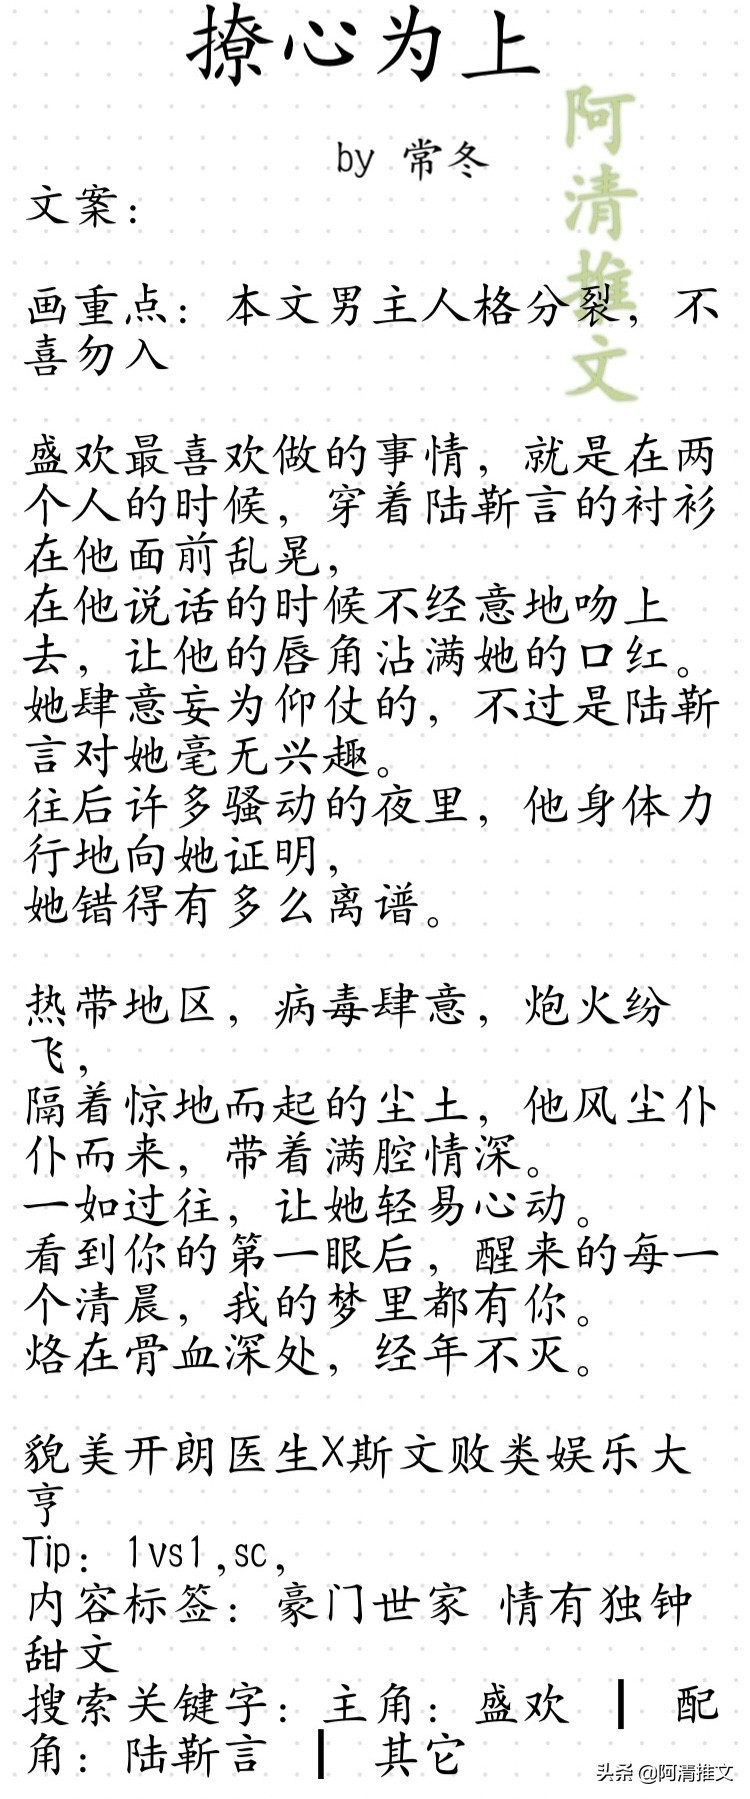 撩心为上
by 常冬
阿清推文
文案：
画重点：本文男主人格分裂，不
喜勿入
盛欢最喜欢做的事情，就是在两
个人的时候，穿着陆靳言的衬衫
在他面前乱晃，
在他说话的时候不经意地吻上
去，让他的唇角沾满她的口红。
她肆意妄为仰仗的，不过是陆靳
言对她毫无兴趣。
往后许多骚动的夜里，他身体力
行地向她证明，
她错得有多么离谱。
热带地区，病毒肆意，炮火纷
飞，
隔着惊地而起的尘土，他风尘仆
仆而来，带着满腔情深。
一如过往，让她轻易心动。
看到你的第一眼后，醒来的每一
个清晨，我的梦里都有你。
烙在骨血深处，经年不灭。
貌美开朗医生X斯文败类娱乐大
亨
Tip：1vs1,sc,
内容标签：豪门世家 情有独钟
甜文
搜索关键字：主角：盛欢 ┃ 配
角：陆靳言 ┃ 其它
头条 @阿清推文